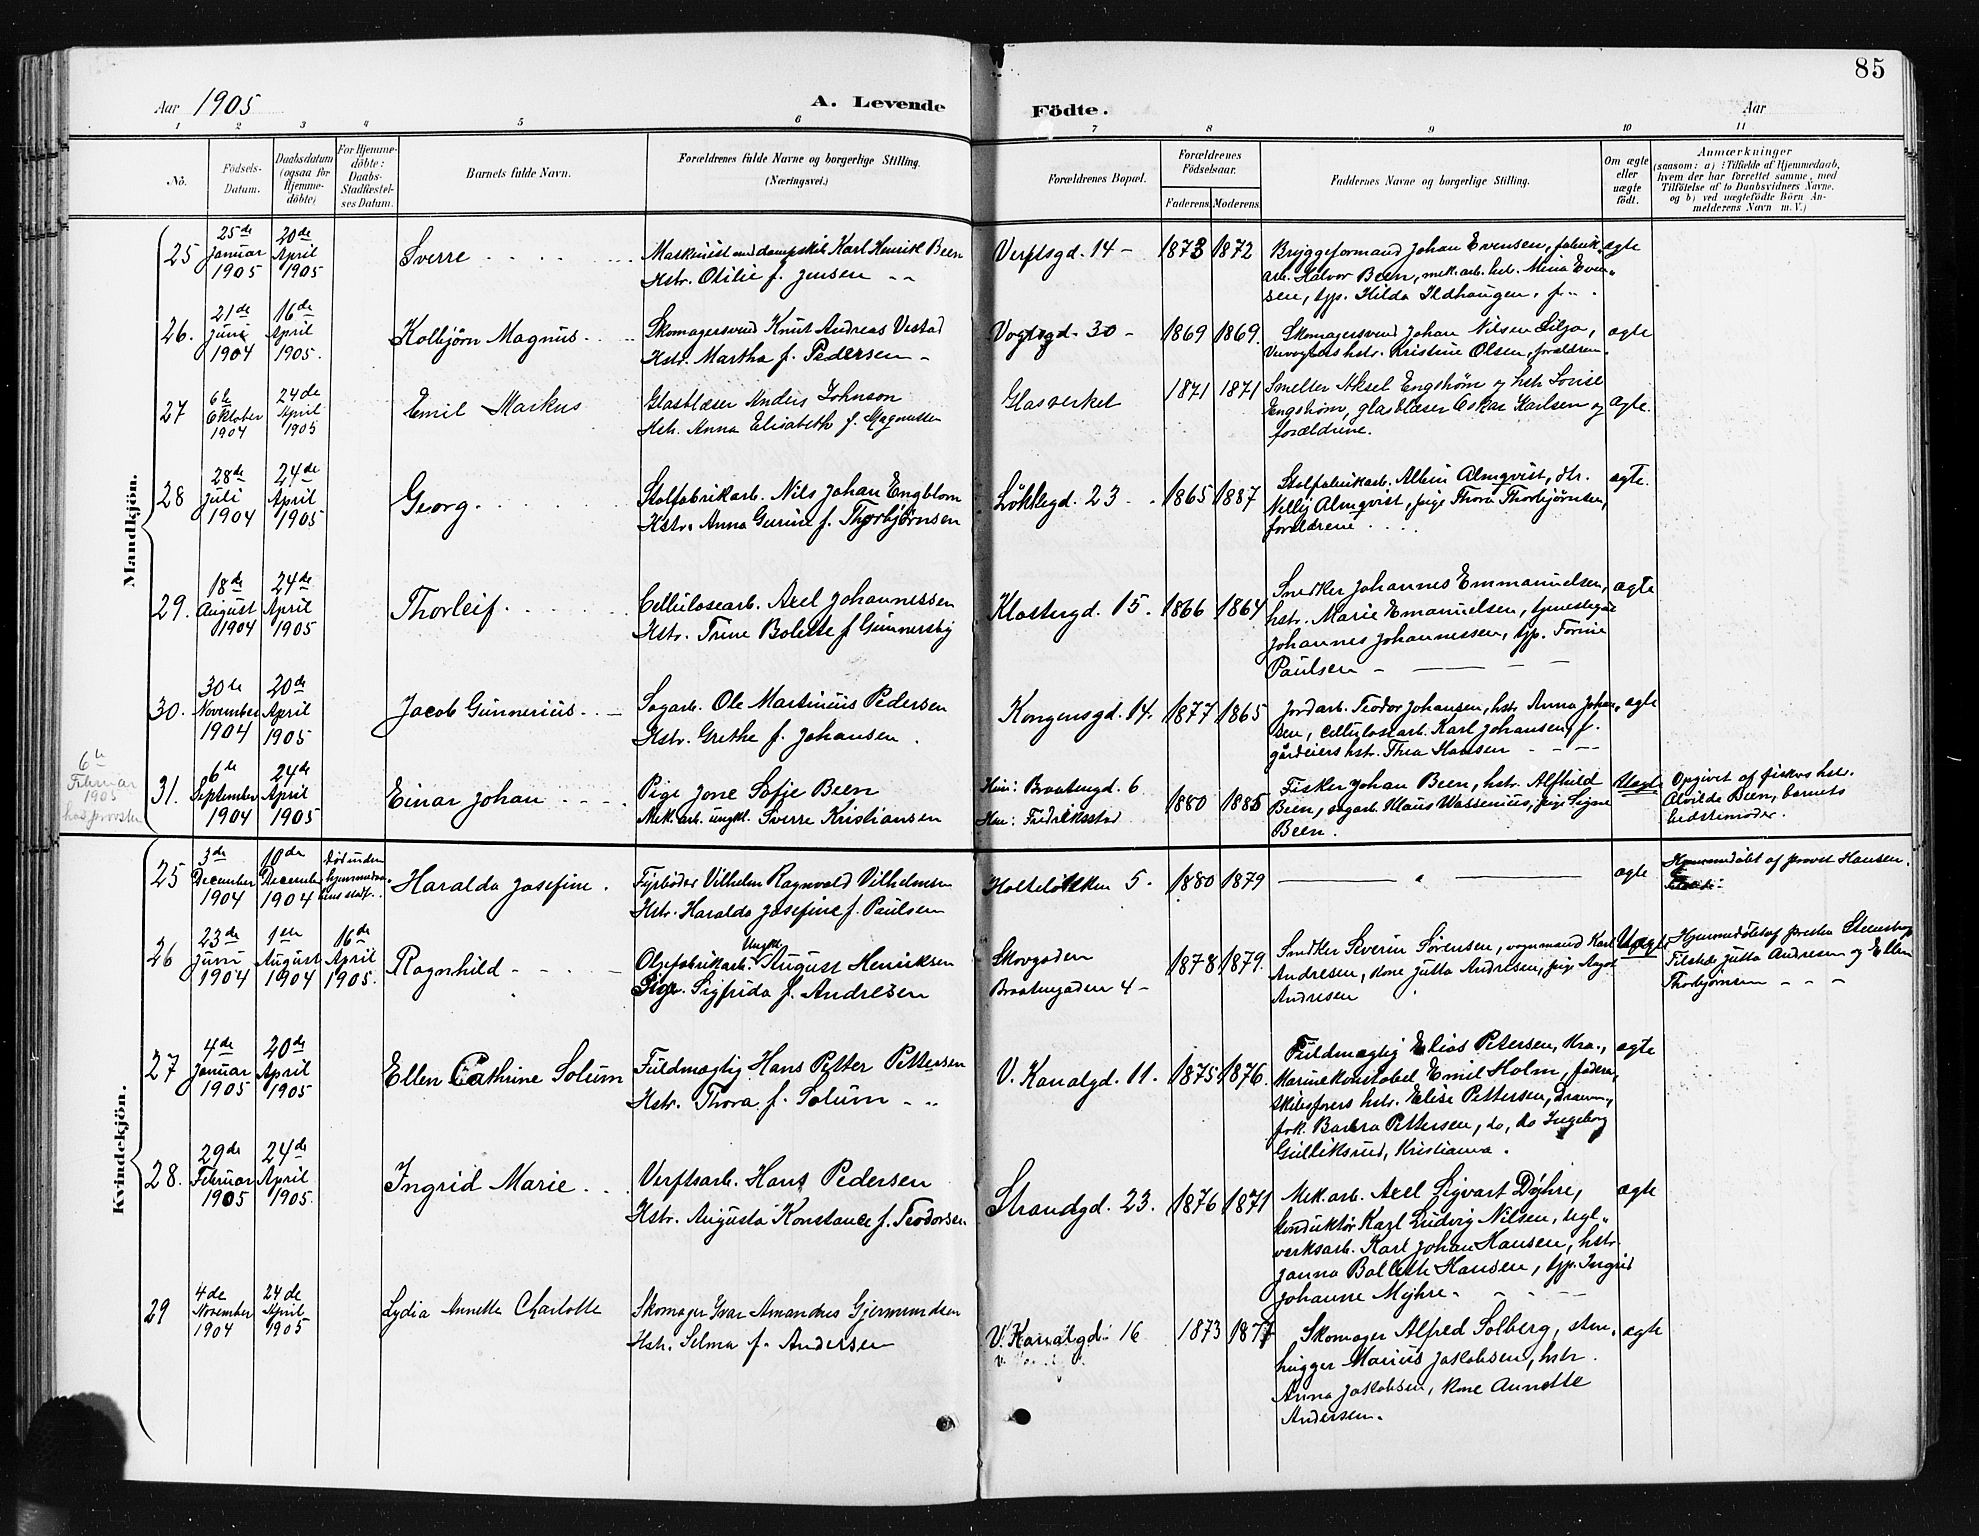 85
Aar 1905
A. Levende
Födte.
Aar
1 2 3 4 5 6 7 8 9 10 11
No.
Födsels-
Datum.
Daabsdatum
(ogsaa for
Hjemme-
döbte)
For Hjemme-
döbte:
Daabs-
Stadfæstel-
ses Datum.
Barnets fulde Navn.
Forældrenes fulde Navne og borgerlige Stilling.
(Næringsvei.)
Forældrenes Bopæl.
Forældrenes
Födselsaar.
Faderens. Moderens.
Faddernes Navne og borgerlige Stilling.
Om ægte
eller
uægte
födt.
Anmærkninger
(saasom: a) : Tilfælde af Hjemmedaab,
hvem der har forrettet samme, med
Tilföielse af to Daabsvidners Navne.
og b) ved uægtefödte Börn An-
melderens Navn m. V.)
Mandkjön.
25
25de
Januar
1905
20de
April
1905
Sverre
Maskinist med dampskib Karl Henrik Been
Hstr. Otilie f. Jensen
Verftsgd. 14 -
1873 1872
Bryggeformand Johan Evensen, fabrik
arb. Halvor Been, mek. arb. hst. Mina Even-
sen, typ. Hilda Ildhaugen, f.
ægte
26.
21de
Juni
1904
16de
April
1905.
Kolbjörn Magnus.
Skomagersvend Knut Andreas Vestad
Hstr. Martha f. Pedersen -
Vogtsgd. 30 -
1869 1869.
Skomagersvend Johan Nilsen Lilja,
hstr. Kristine Olsen, forældren.
ægte
27
6te
Oktober
1904
24de
April
1905
Emil Markus
Glasblæser Anders Johnson
Hstr. Anna Elisabeth f. Magnussen
Glasverket
1871 1871
Smelter Aksel Engström og hstr Lovise
Engström, glasblæser Oskar Karlsen og
forældrene.
ægte.
28
28de
Juli
1904
24de
April
1905
Georg.
Stolfabrikarb. Nils Johan Engblom
Hstr. Anna Gurine f. Thorbjørnsen
Løkkegd. 23
1865 1887
Stolfabrikarb. Albin Almqvist, do.
Nelly Almqvist, pige Thora Thorbjörnsen,
forældrene
ægte.
29.
18de
August
1904
24de
April
1905
Thorleif.
Cellulosearb. Axel Johannessen
Hstr. Trine Bolette f Gunnersby
Klostergd. 15.
1866 1864
Snedker Johannes Emmanuelsen,
hstr. Marie Emanuelsen, tjenestegut
Johannes Johannessen, typ. Torine
Paulsen -
ægte
30.
30te
November
1904
20de
April
1905
Jacob Gunnerius.
Sagarb. Ole Martinius Pedersen
Hstr. Grethe f. Johansen.
Kongensgd. 14.
1877 1865
Jordarb. Teodor Johansen, hstr. Anna Johan-
sen, cellulosearb. Karl Johansen, f.
gårdeiers hstr. Thea Hansen
ægte
6te
Februar
1905
hos provsten
31.
6te
September
1904
24de
April
1905
Einar Johan
Pige Jone Sofie Been
Mek. arb. ungkl. Sverre Kristiansen
Hun: Braatengd. 6
Han: Fredriksstad
1880 1885
Fisker Johan Been, hstr. Alfhild
Been, sagarb. Klaus Wassenius, pige Signe
Been.
Uægte
Opgivet af fiskers hstr.
Alvilde Been, barnets
bedstemoder.
Kvindekjön.
25
3de
December
1904
10de
December
1904
Död inden
hjemmedaa-
bens stadf.
Haralda Josefine.
Fyrböder Vilhelm Ragnvald Vilhelmsen
Hstr. Haralda Josefine f. Paulsen
Holteløkken 5.
1880 1879
ægte
Hjemmedøbt af provst Hansen.
26
23de
Juni
1904
1ste
August
1904
16de
April
1905.
Ragnhild
Oljefabrikarb. Ungkl. August Henriksen
Pige. Sigfrida f. Andresen
Skovgaden
Braatengaden 4 -
1878 1879.
Snedker Severin Sørensen, vognmand Karl
Andresen, kone Jutta Andresen, pige Aagot
Andresen
Uægte
Hjemmedøbt af prestn Steenstrup
Tilstede Jutta Andresen og Ellen
Thorbjørnsen
27
4de
Januar
1905
20de
April
1905
Ellen Cathrine Solum
Fuldmægtig Hans Petter Pettersen
Hstr. Thora f. Solum
V. Kanalgd. 11.
1875 1876.
Fuldmægtig Elias Petersen, Kra.,
Marinekonstabel Emil Holm,
skibsförers hstr. Elise Pettersen, Dram.,
frk. Barbra Pettersen, do, do Ingeborg
Gulliksrud, Kristiania.
ægte
28.
29de
Februar
1905
24de
April
1905.
Ingrid Marie
Verftsarb. Hans Pedersen
Hstr. Augusta Konstance f. Teodorsen
Strandgd. 23.
1876 1871
Mek. arb. Axel Sigvart Dyhre,
konduktör Karl Ludvig Nilsen, tegl-
verksarb. Karl Johan Hansen, hstr.
Janna Bolette Hansen, typ. Ingrid
Johanne Myhre.
ægte
29
4de
November
1904
24de
April
1905
Lydia Annette Charlotte
Skomager Ivar Amandus Gjermundsen
Hstr. Selma f. Andersen
V. Kanalgd: 16
1873 1877
Skomager Alfred Solberg, sten-
hugger Marius Jakobsen, hstr.
Anna Jakobsen, kone Annette
Andersen.
ægte